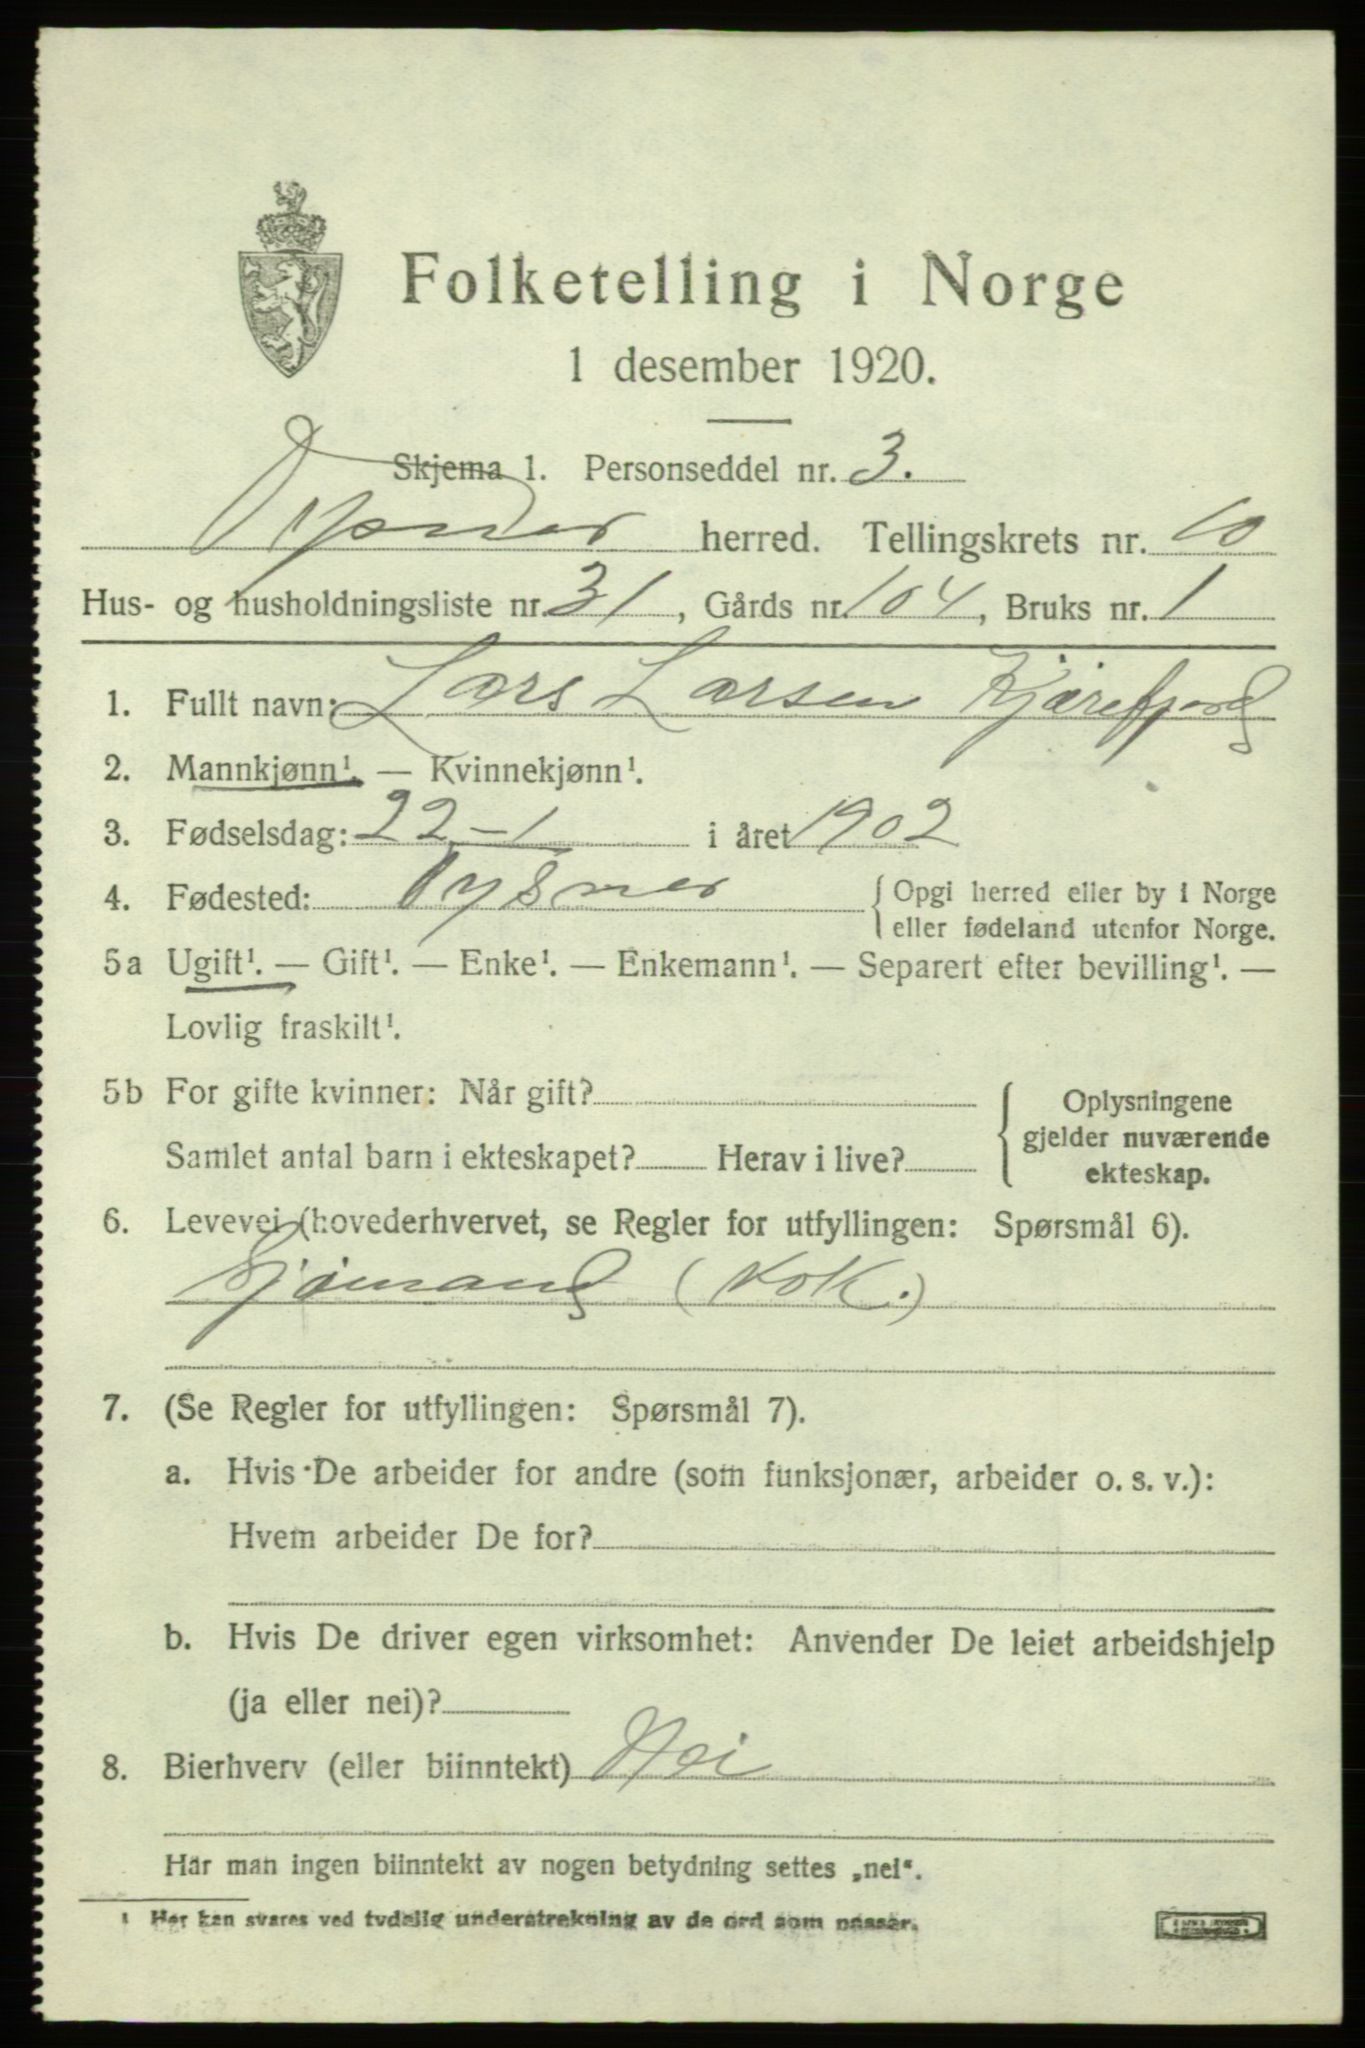 Folketelling i Norge
1 desember 1920.
Skjema 1. Personseddel nr. 3.
Tysnes herred. Tellingskrets nr. 10
Hus- og husholdningsliste nr. 31, Gårds nr. 104, Bruks nr. 1
1. Fullt navn: Lars Larsen Kjærefjord
2. Mannkjønn¹. — Kvinnekjønn¹.
3. Fødselsdag: 22-1 i året 1902
4. Fødested: Tysnes {Opgi herred eller by i Norge
eller fødeland utenfor Norge.
5a Ugift¹. — Gift¹. — Enke¹. — Enkemann¹. — Separert efter bevilling¹. —
Lovlig fraskilt¹.
5b For gifte kvinner: Når gift?
Samlet antal barn i ekteskapet? Herav i live?
Oplysningene
gjelder nuværende
ekteskap.
6. Levevei (hovederhvervet, se Regler for utfyllingen: Spørsmål 6).
Sjømand (Kok.)
7. (Se Regler for utfyllingen: Spørsmål 7).
a. Hvis De arbeider for andre (som funksjonær, arbeider o. s. v.):
Hvem arbeider De for?
b. Hvis De driver egen virksomhet: Anvender De leiet arbeidshjelp
(ja eller nei)?
8. Bierhverv (eller biinntekt) Nei
Har man ingen biinntekt av nogen betydning settes „nei“.
¹ Her kan svares ved tydelig understrekning av de ord som passer.